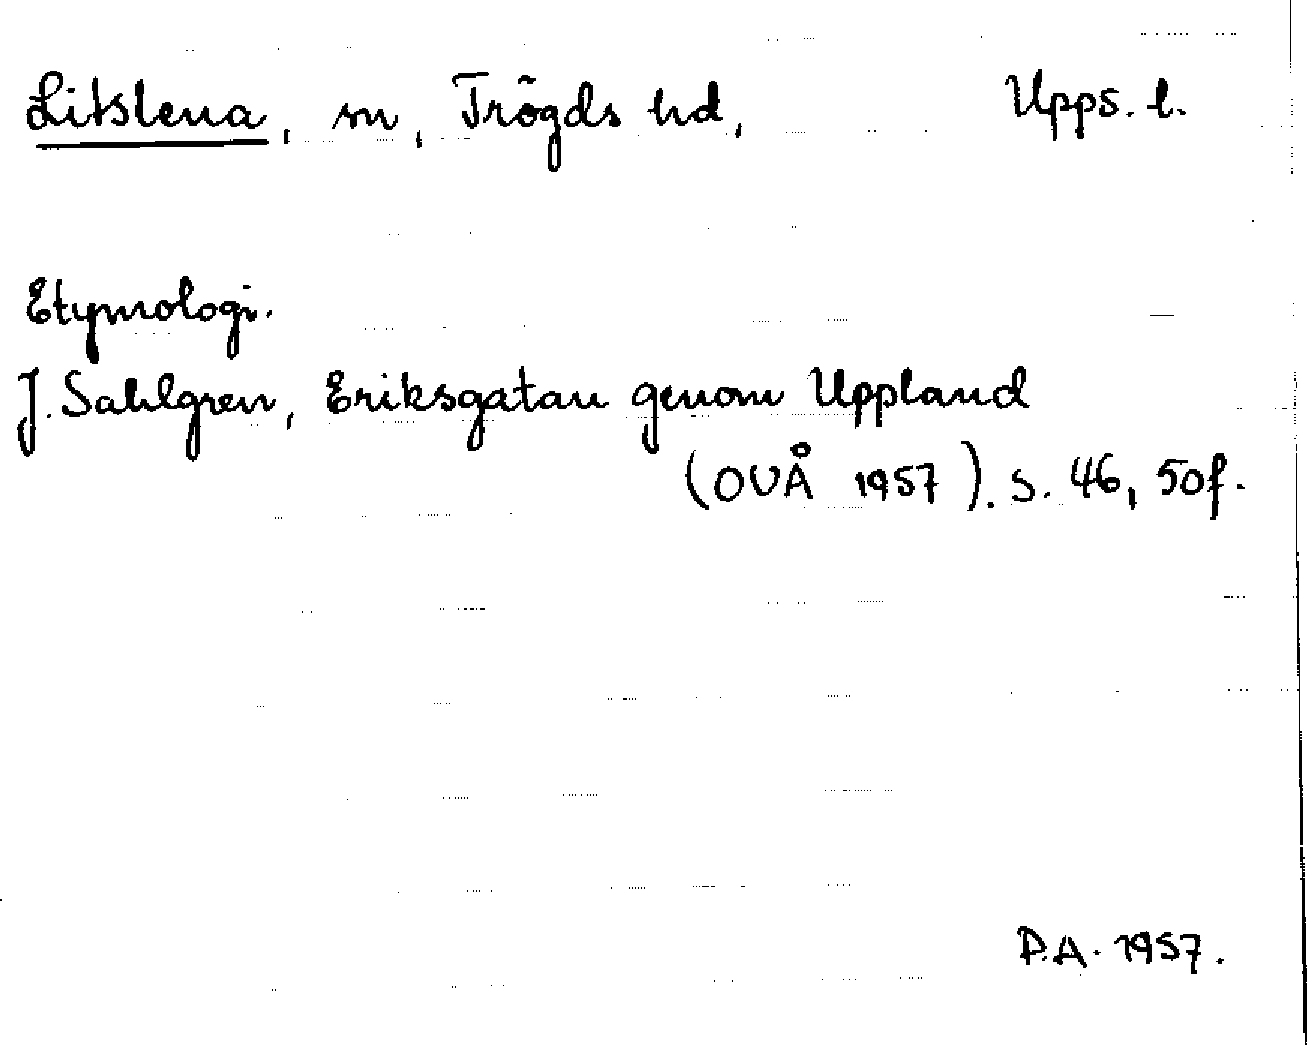 Litslena, sn, Trögds hd, Upps. l.
Etymologi.
J. Sahlgren, Eriksgatan genom Uppland
(OUÅ 1957). s. 46, 50f.
P.A. 1957.